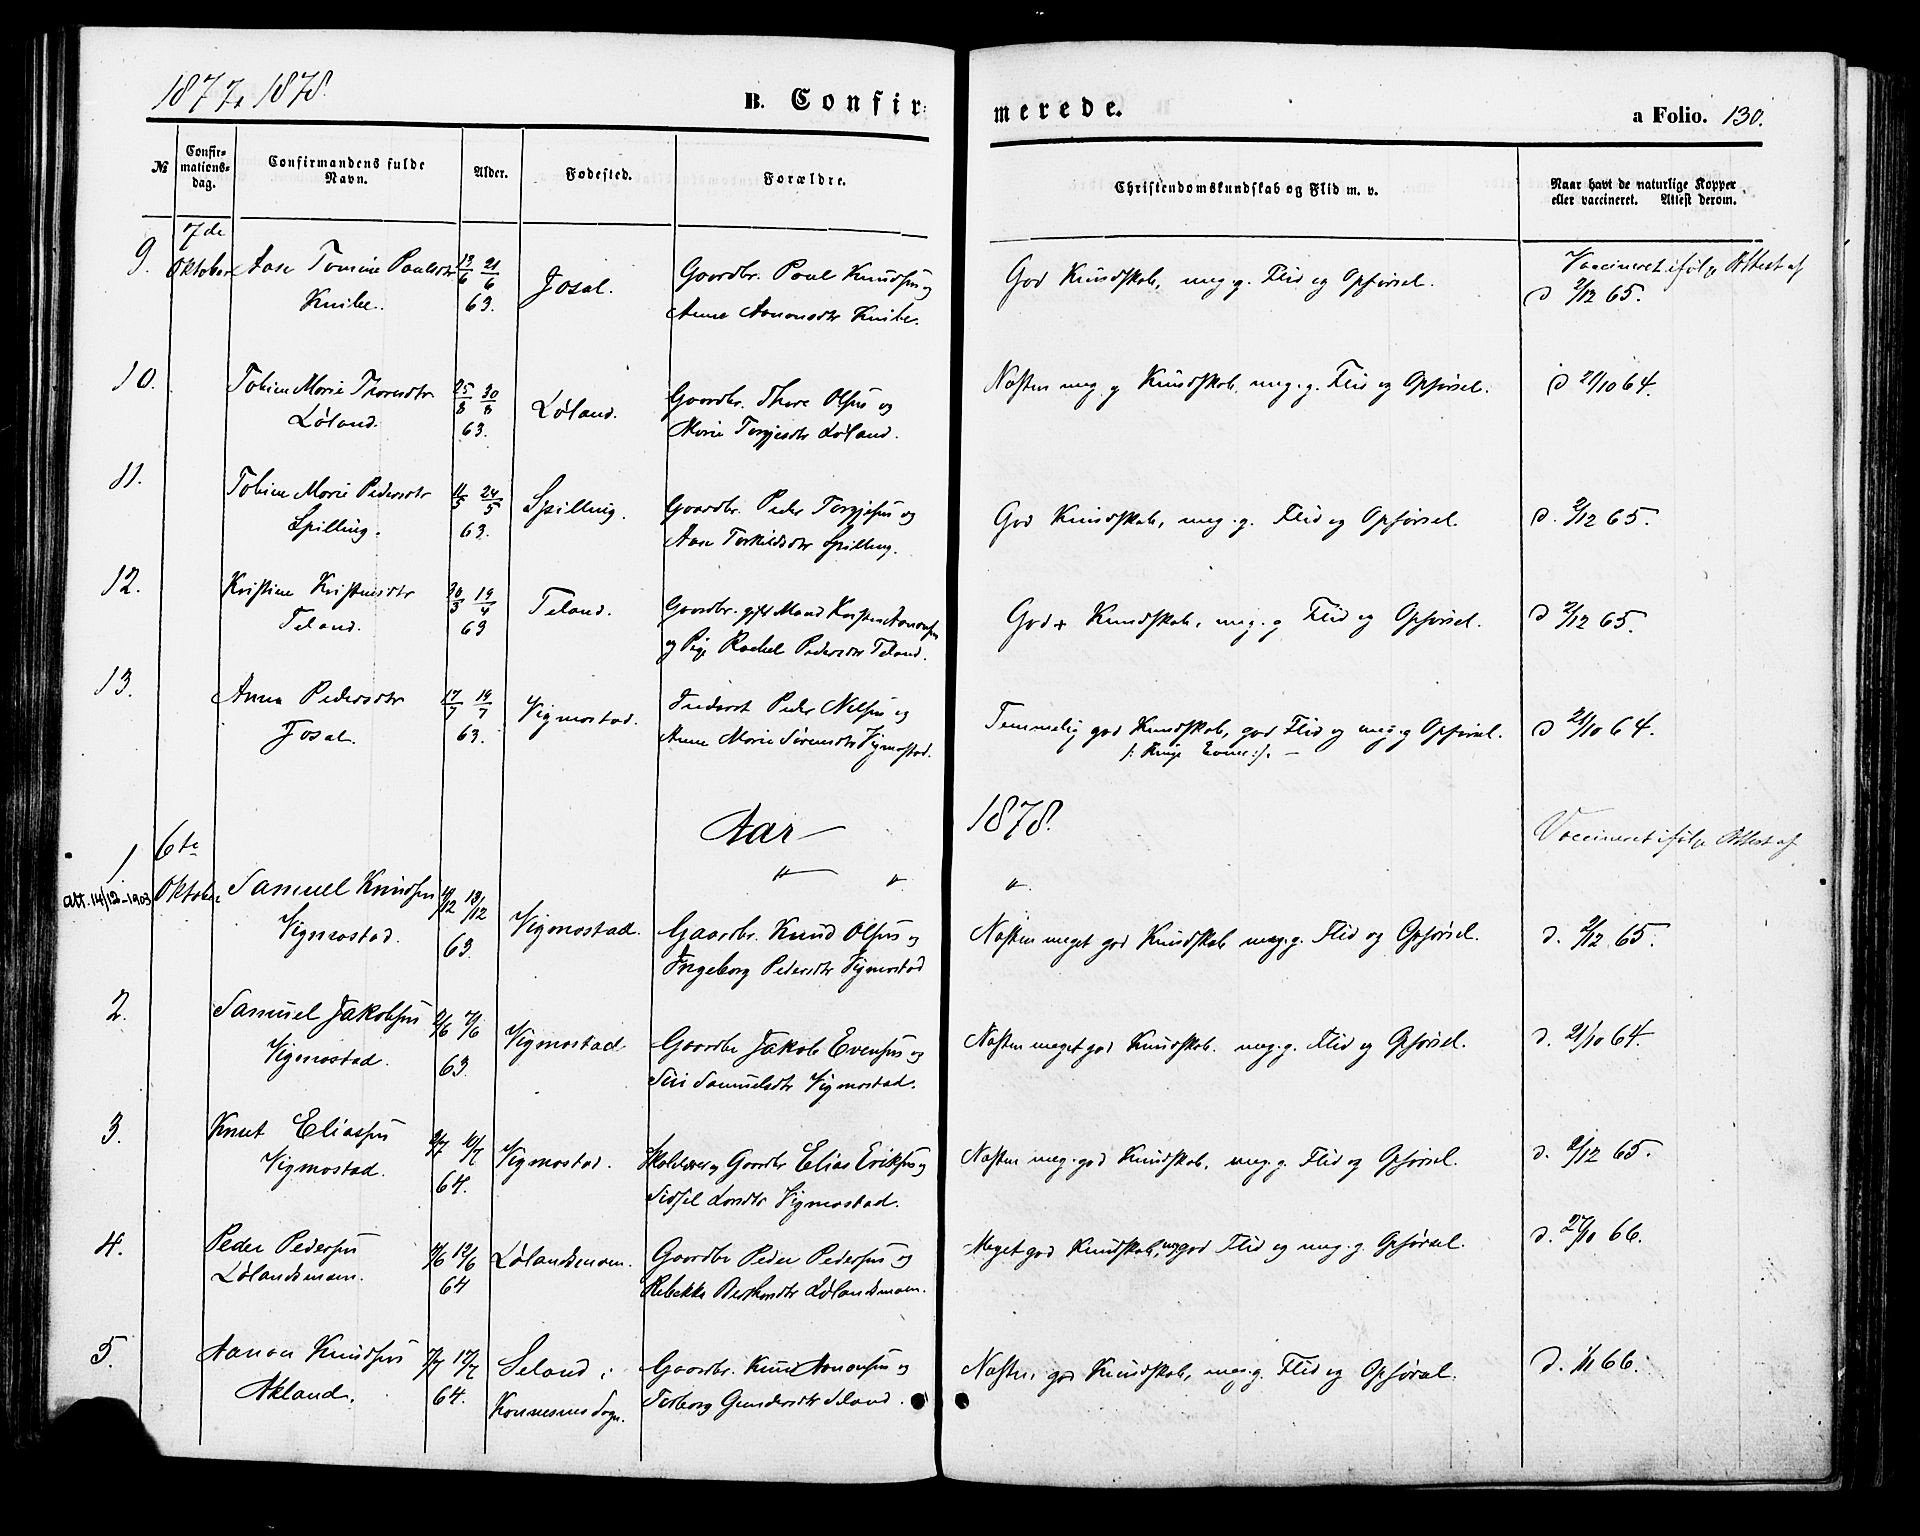 1877, 1878.
B. Confirmerede.
a Folio. 130.
№ Confirmationsdag. Confirmandens fulde Navn. Alder. Fødested. Forældre. Christendomskundskab og Flid m. v. Naar havt de naturlige Kopper eller vaccineret. Attest derom.
7de Vaccineret ifølge Attest af
9. Oktober Aase Tomine Paulsdtr 19/6 21/6 Josal. Gaardbr. Paul Knudsen og God Kundskab, meg. g. Flid og Opførsel. d 2/12 65.
Knibe. 63. Anne Aanonsdtr Knibe.
10. Tobine Marie Thoresdtr 25/8 30/8 Løland. Gaardbr. Thore Olsen og Næsten meg. g Kundskab, meg. g. Flid og Opførsel. d 21/10 64.
Løland. 63. Marie Torgjesdtr Løland.
11. Tobine Marie Pedersdtr 11/5 24/5 Spilling. Gaardbr. Peder Torgjesen og God Kundskab, meg. g. Flid og Opførsel d. 2/12 65.
Spilling. 63. Aase Torkildsdtr Spilling.
12. Kristine Kristensdtr 30/3 19/4 Teland. Gaardbr. gift Mand Kristen Aanonsen God + Kundskab, meg. g Flid og Opførsel. d 2/12 65.
Teland. 63 og Pige Rachel Pedersdtr Teland.
13. Anna Pedersdtr 17/7 19/7 Vigmostad. Peder Nelsen og Temmelig god Kundskab, god Flid og meg. g Opførsel. d 21/10 64.
Josal. 63. Anne Marie Sørensdtr Vigmostad. /: Ringe Evne :/. —
Aar — 1878.
6te Vaccineret ifølge Attest af
1. Oktober Samuel Knudsen 13/12 Vigmostad. Gaardbr. Knud Olsen og Næsten meget god Kundskab meg. g. Flid og Opførsel. d. 2/12 65.
Att. 14/12-1903 Vigmostad. 63. Ingeborg Pedersdtr Vigmostad
2. Samuel Jakobsen 2/6 7/6 Vigmostad. Gaardbr Jakob Evensen og Næsten meget god Kundskab. meg. g. Flid og Opførsel. d. 21/10 64.
Vigmostad. 63. Siri Samuelsdtr Vigmostad.
3. Knut Eliassen 2/7 10/7 Vigmostad. Skolelærer og Gaardbr Elias Eriksen og Næsten meg. god Kundskab, meg. g. Flid og Opførsel. d. 2/12 65.
Vigmostad. 64. Sidsel Larsdtr Vigmostad.
4. Peder Pedersen 12/6 Lølandsmoen. Gaardbr Peder Pedersen og Meget god Kundskab, meg. god Flid og meg. g. Opførsel. d. 27/10 66.
Lølandsmoen. 64 Rebekka Lølandsmoen.
5. Aanon Knudsen 7/7 17/7 Seland i Gaardbr. Knud Aanonsen og Næsten god Kundskab, meg. g. Flid og Opførsel. d. 1/11 66.
Akland. 64. Konsmo Sogn. Torborg Gundersdtr Seland.